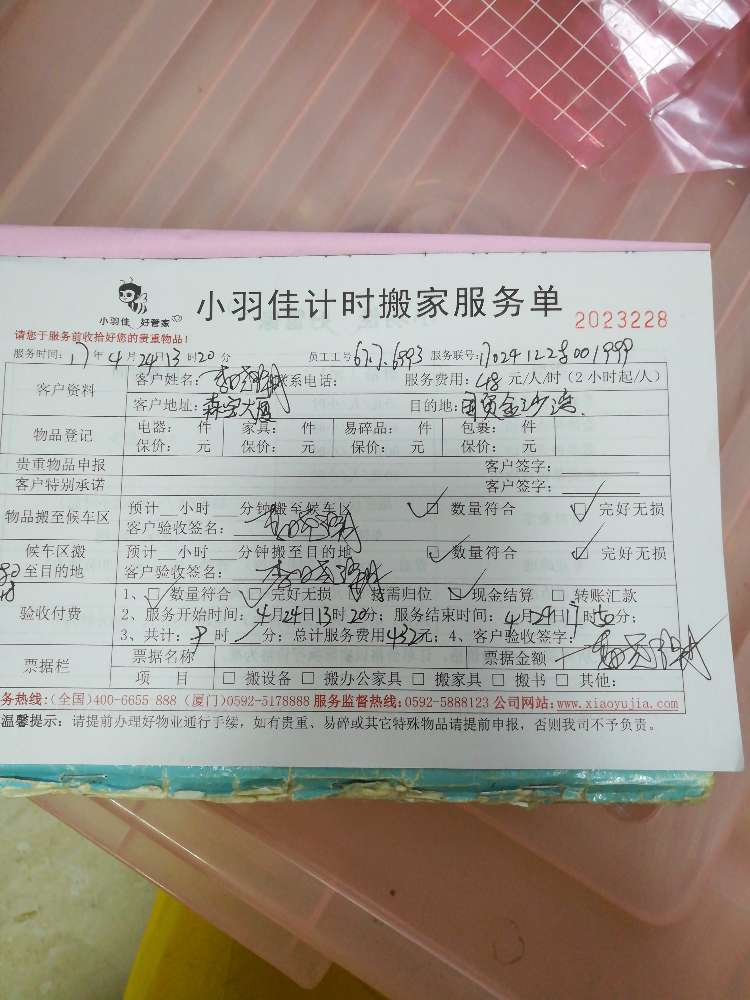 小羽佳 好管家
小羽佳计时搬家服务单
2023228
请您于服务前收拾好您的贵重物品!
服务时间: 17 年 4 月 24 日 13 时 20 分 员工工号 服务联号:
客户资料 客户姓名: 联系电话: 服务费用: 48 元/人/时(2小时起/人)
客户地址: 森宝大厦 目的地: 国贸金沙湾
物品登记 电器: 件 家具: 件 易碎品: 件 包裹: 件
保价: 元 保价: 元 保价: 元 保价: 元
贵重物品申报 客户签字:
客户特别承诺 客户签字:
物品搬至候车区 预计 小时 分钟搬至候车区 ☑ 数量符合 ☑ 完好无损
客户验收签名:
候车区搬至目的地 预计 小时 分钟搬至目的地 ☑ 数量符合 ☑ 完好无损
客户验收签名:
验收付费 1、☑ 数量符合 ☑ 完好无损 ☑ 按需归位 ☑ 现金结算 □ 转账汇款
2、服务开始时间: 4月24日13时20分; 服务结束时间: 4月24日17时50分;
3、共计: 9 时 / 分; 总计服务费用432元; 4、客户验收签字:
票据栏 票据名称 票据金额
项 目 □ 搬设备 □ 搬办公家具 □ 搬家具 □ 搬书 □ 其他:
务热线:(全国)400-6655 888 (厦门)0592-5178888 服务监督热线:0592-5888123 公司网站:www.xiaoyujia.com
温馨提示: 请提前办理好物业通行手续, 如有贵重、易碎或其它特殊物品请提前申报, 否则我司不予负责。